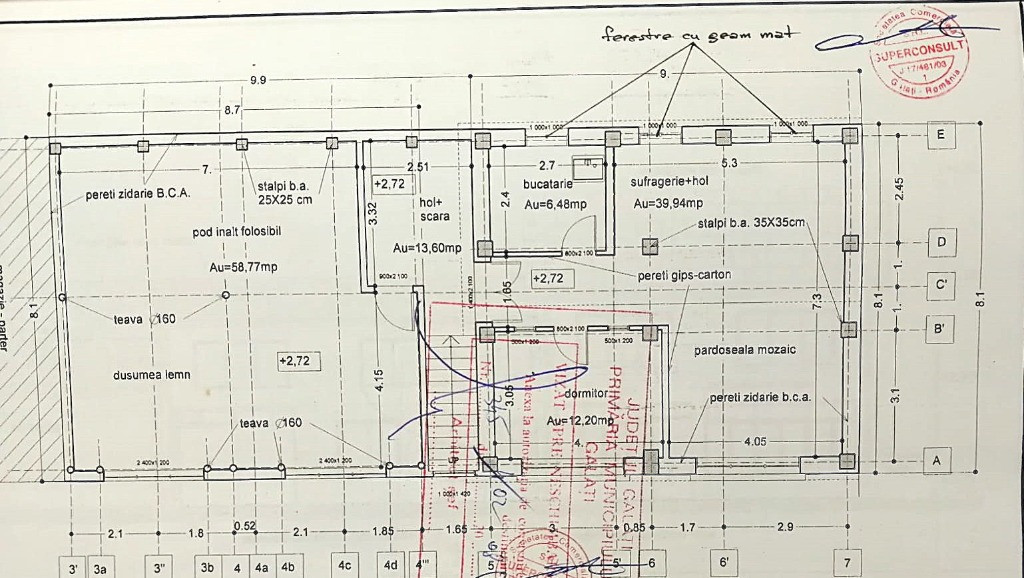 ferestre cu geam mat
Societatea Comercială
S.R.L.
SUPERCONSULT
J 17/461/03
1
Galați - România
9.9
9.
8.7
1 000x1 000
1 000x1 000
1 000x1 000
E
7.
2.51
2.7
5.3
pereti zidarie B.C.A.
stalpi b.a.
25X25 cm
+2,72
hol+
scara
bucatarie
Au=6,48mp
2.4
sufragerie+hol
Au=39,94mp
2.45
3.32
pod inalt folosibil
Au=58,77mp
Au=13,60mp
stalpi b.a. 35X35cm
D
800x2 100
900x2 100
+2,72
pereti gips-carton
1.
C'
1.65
8.1
teava Ø160
7.3
8.1
1.
8.1
B'
800x2 100
magazie - parter
+2,72
dusumea lemn
4.15
3.05
dormitor
Au=12,20mp
4.
pardoseala mozaic
pereti zidarie b.c.a.
3.1
teava Ø160
4.05
A
2 400x1 200
2 400x1 200
1 000x1 420
JUDEȚUL GALAȚI
PRIMĂRIA MUNICIPIULUI
GALAȚI
VIZAT SPRE NESCHIMBARE
Anexa la autorizația de
Nr.
Arhitect șef
2.1
1.8
0.52
2.1
1.85
1.65
3.
0.85
1.7
2.9
3'
3a
3"
3b
4
4a
4b
4c
4d
4'''
5
5'
6
6'
7